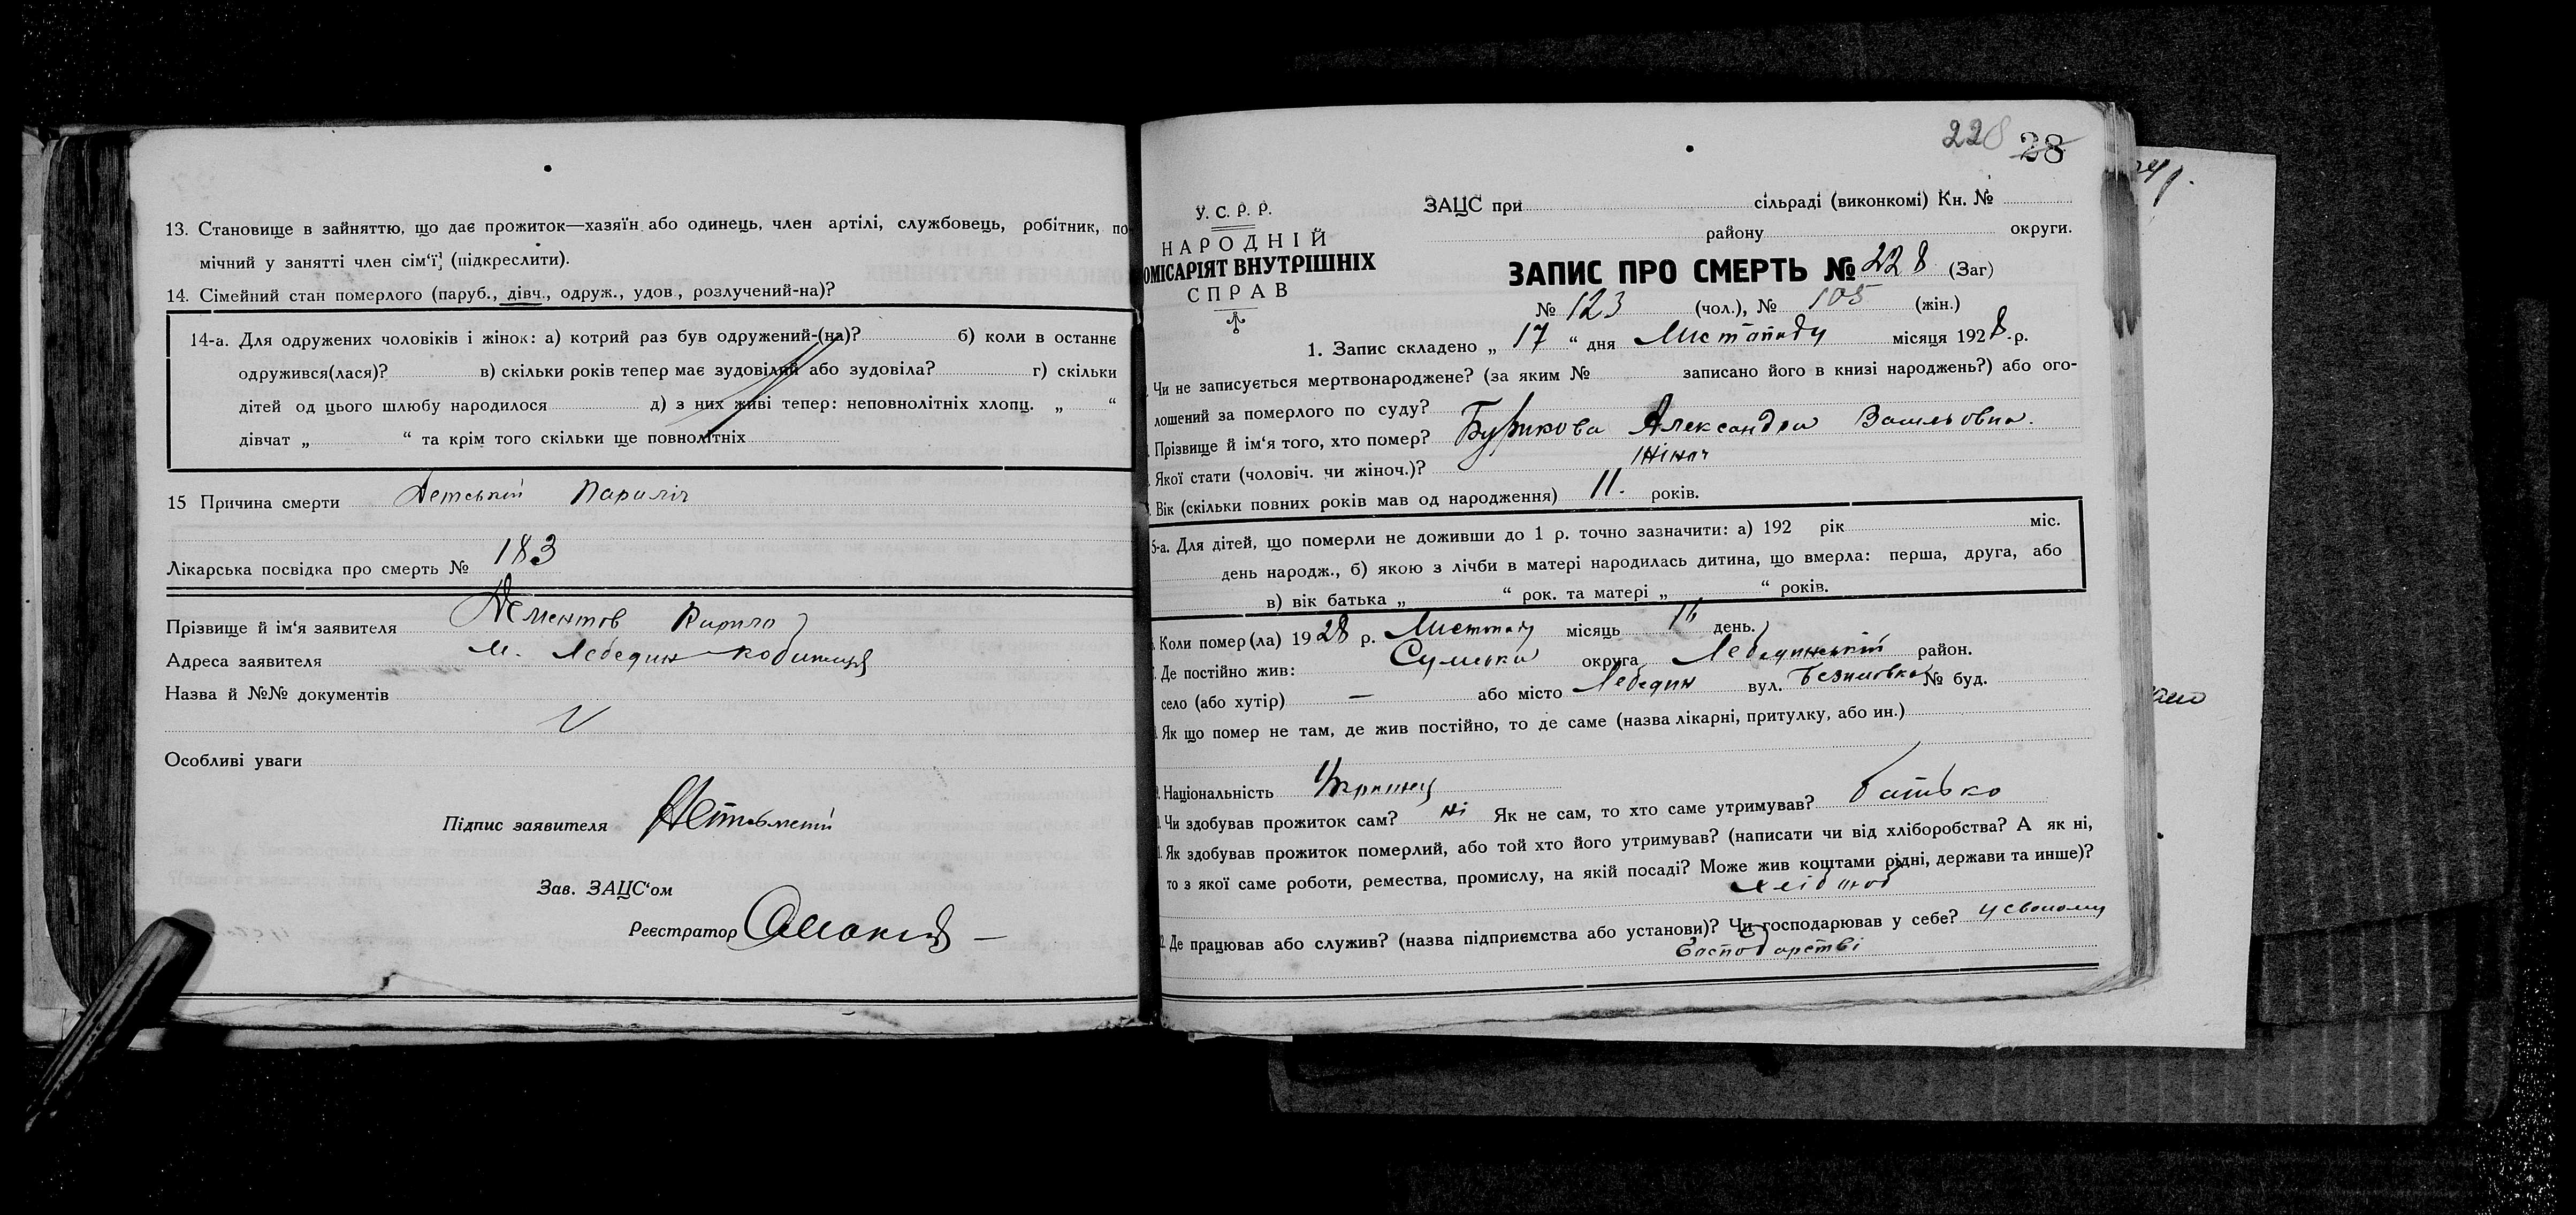 13. Становище в зайняттю, що дає прожиток—хазяїн або одинець, член артілі, службовець, робітник, по
мічний у занятті член сім'ї, (підкреслити).
14. Сімейний стан померлого (паруб., дівч., одруж., удов., розлучений-на)?
14-а. Для одружених чоловіків і жінок: а) котрий раз був одружений-(на)? б) коли в останнє
одружився(лася)? в) скільки років тепер має зудовілий або зудовіла? г) скільки
дітей од цього шлюбу народилося д) з них живі тепер: неповнолітніх хлопц. „ “
дівчат „ “ та крім того скільки ще повнолітніх
15 Причина смерти Детський Параліч
Лікарська посвідка про смерть № 183
Прізвище й ім'я заявителя Дементов Кирило
Адреса заявителя м. Лебедин
Назва й №№ документів
Особливі уваги
Підпис заявителя
Зав. ЗАЦС'ом
Реєстратор
228 28
У. С. Р. Р.
НАРОДНІЙ
ОМІСАРІЯТ ВНУТРІШНІХ
СПРАВ
ЗАЦС при сільраді (виконкомі) Кн. №
району округи.
ЗАПИС ПРО СМЕРТЬ № 228 (Заг)
№ 123 (чол.), № 105 (жін.)
1. Запис складено „ 17 “ дня Листопаду місяця 1928 р.
Чи не записується мертвонароджене? (за яким № записано його в книзі народжень?) або ого-
лошений за померлого по суду?
Прізвище й ім'я того, хто помер? Александра
Якої стати (чоловіч. чи жіноч.)? жіноч
Вік (скільки повних років мав од народження) 11. років.
5-а. Для дітей, що померли не доживши до 1 р. точно зазначити: а) 192 рік міс.
день народж., б) якою з лічби в матері народилась дитина, що вмерла: перша, друга, або
в) вік батька „ “ рок. та матері „ “ років.
Коли помер(ла) 1928 р. Листопаду місяць 16 день.
Де постійно жив: Сумська округа Лебединський район.
село (або хутір) — або місто Лебедин вул. № буд.
Як що помер не там, де жив постійно, то де саме (назва лікарні, притулку, або ин.)
Національність Українец
Чи здобував прожиток сам? ні Як не сам, то хто саме утримував? батько
Як здобував прожиток померлий, або той хто його утримував? (написати чи від хліборобства? А як ні,
то з якої саме роботи, ремества, промислу, на якій посаді? Може жив коштами рідні, держави та инше)?
Де працював або служив? (назва підприємства або установи)? Чи господарював у себе? у своєму
Господарстві